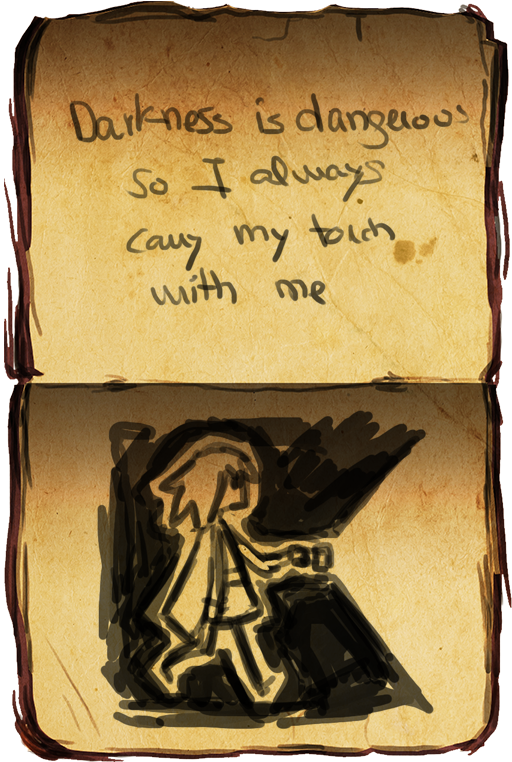 Darkness is dangerous
so I always
carry my torch
with me